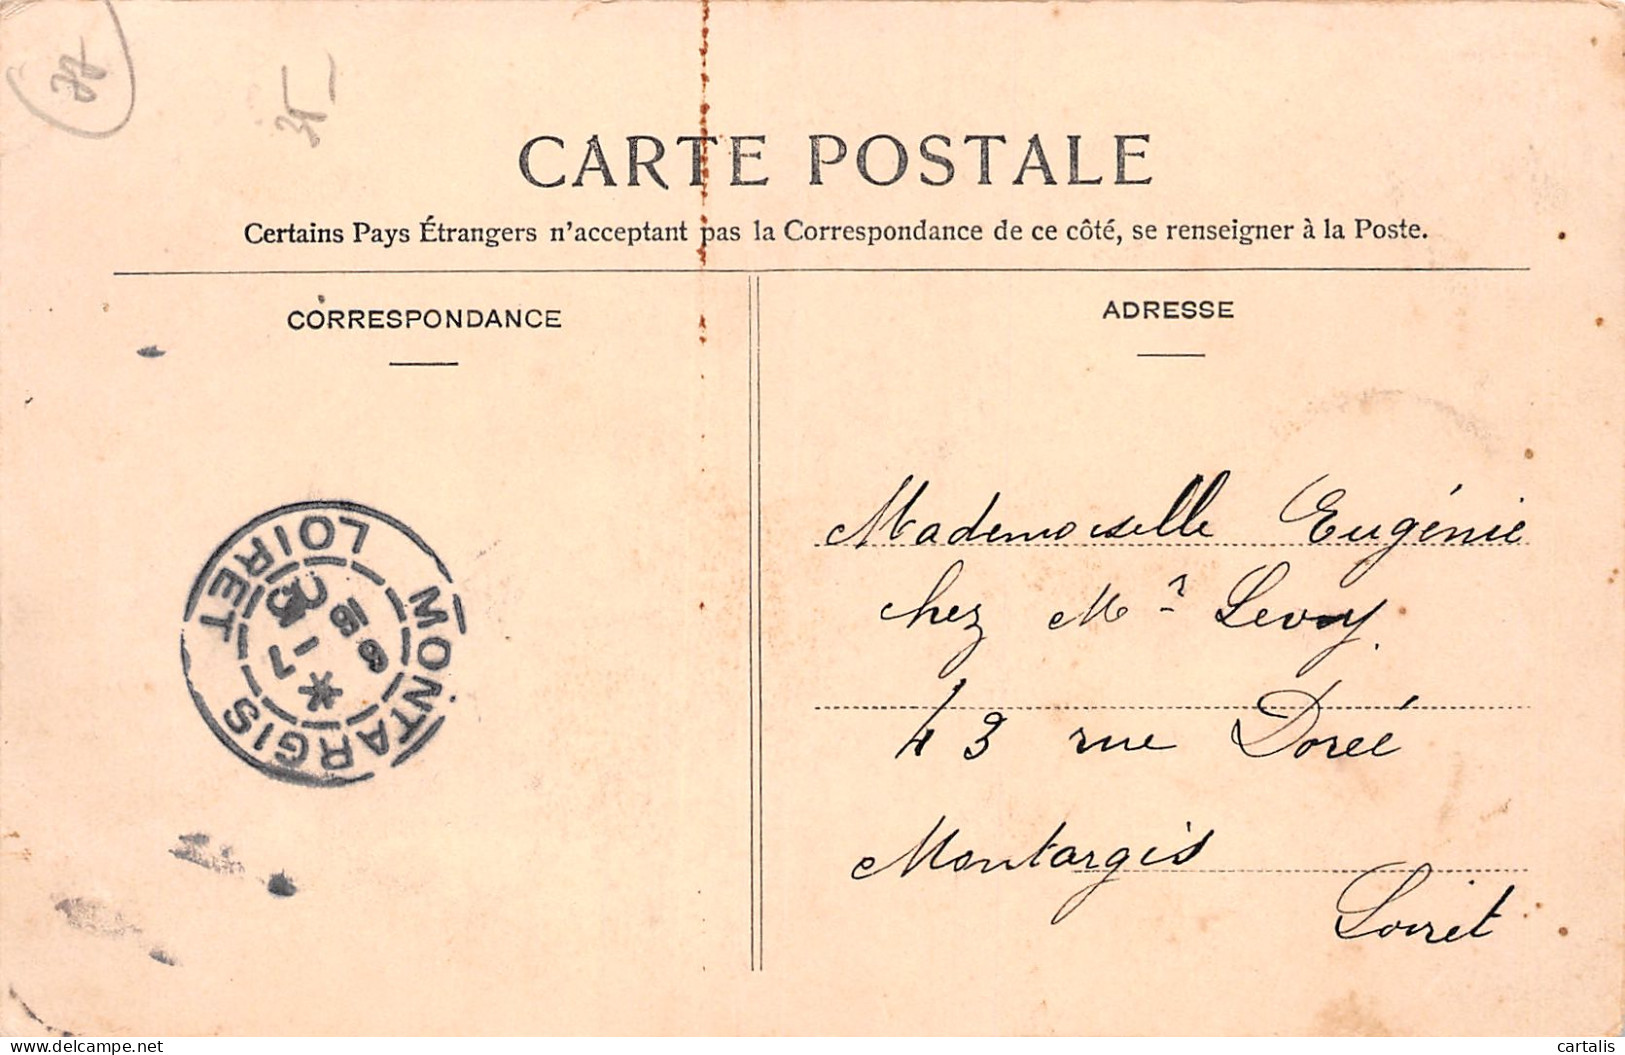 CARTE POSTALE
Certains Pays Étrangers n'acceptant pas la Correspondance de ce côté, se renseigner à la Poste.
CORRESPONDANCE
ADRESSE
Mademoiselle Eugénie
chez Mr Levy
43 rue Dorée
Montargis
Loiret
MONTARGIS
LOIRET
delcampe.net
cartalis